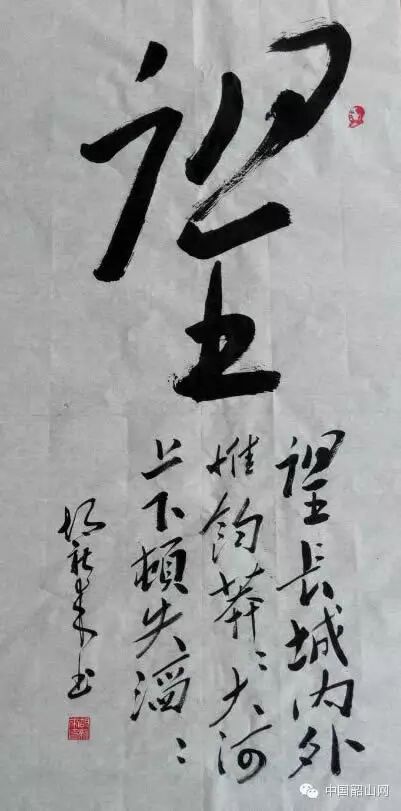 望
望長城内外
惟餘莽〻大河
上下頓失滔〻
书
中国韶山网